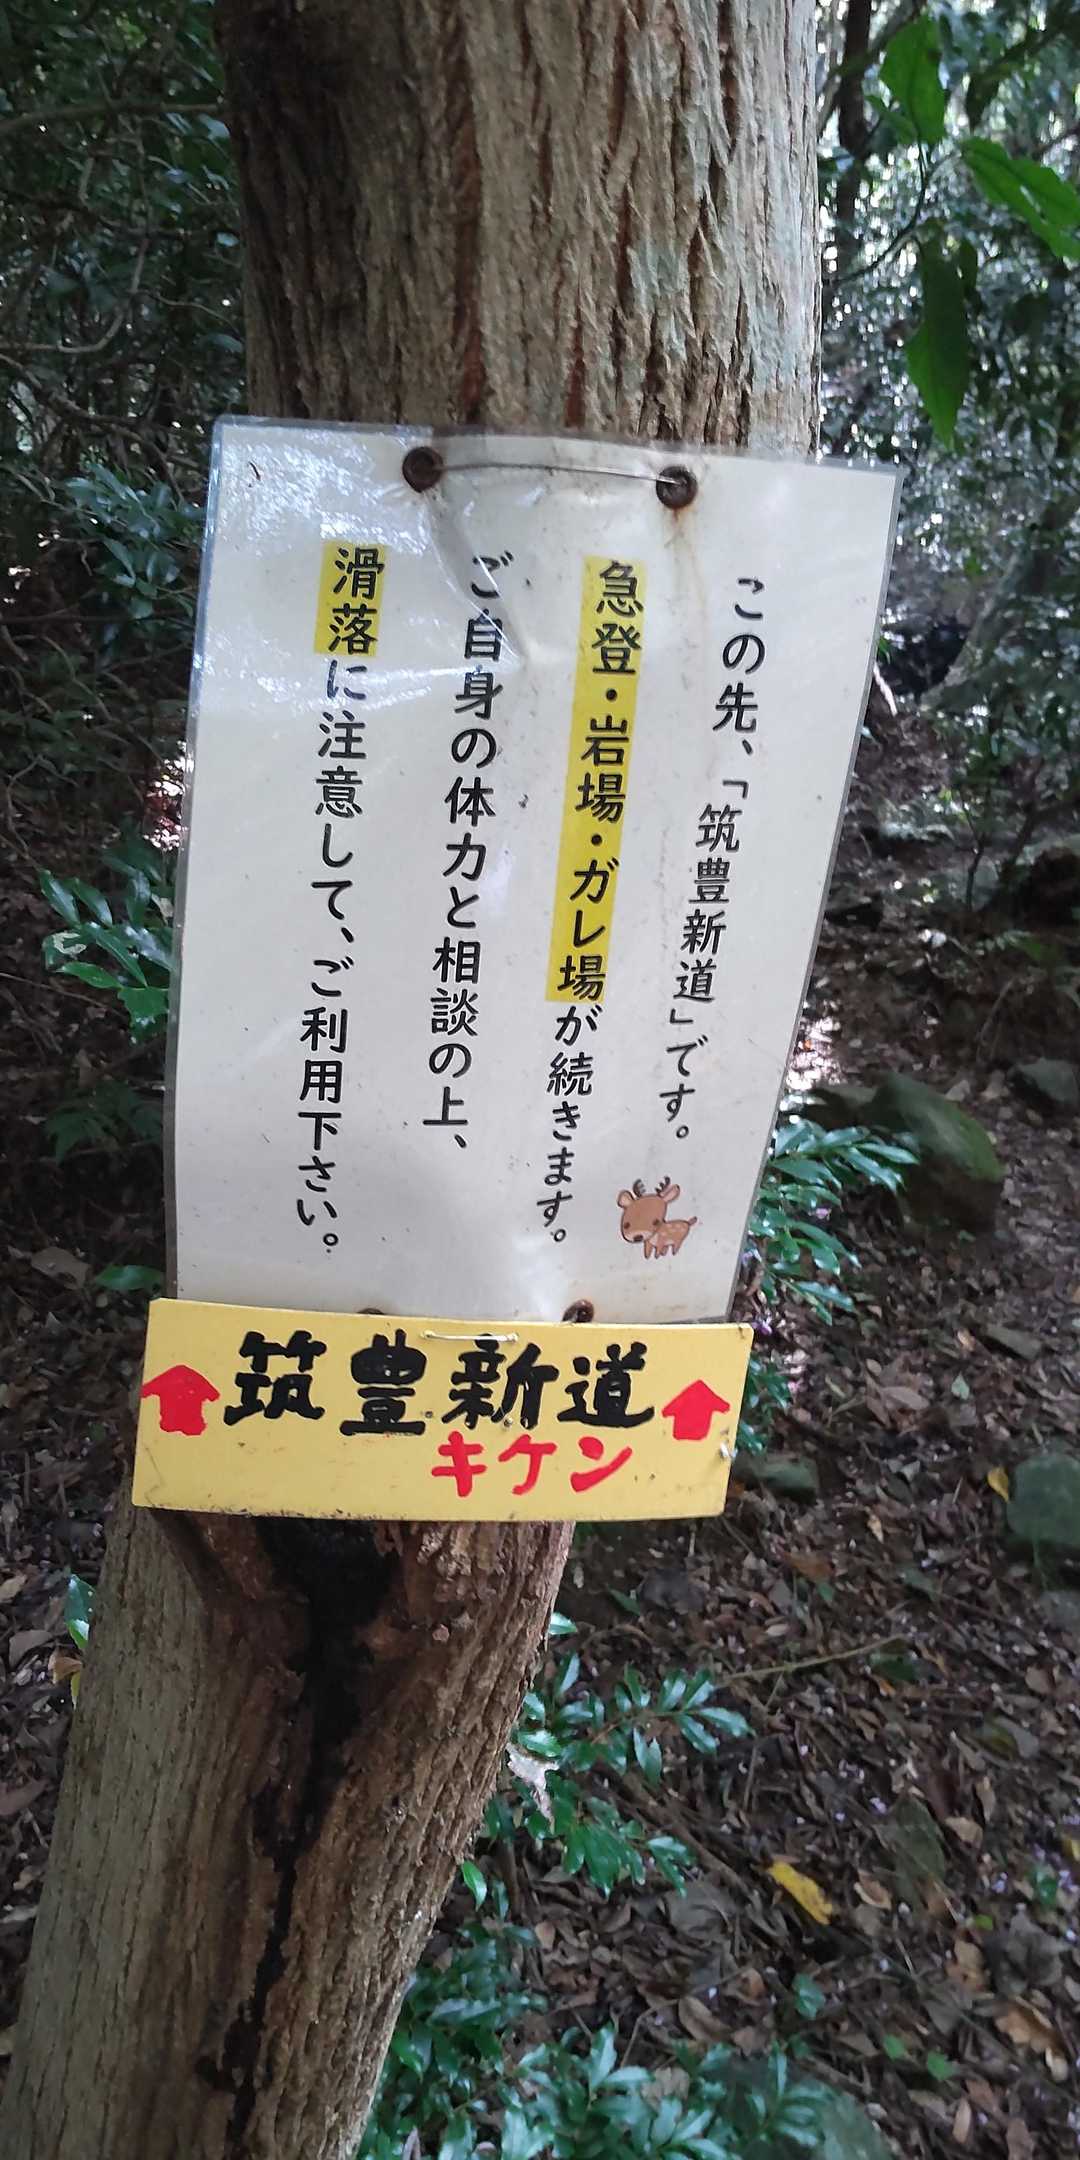 この先、「筑豊新道」です。
急登・岩場・ガレ場が続きます。
ご自身の体力と相談の上、
滑落に注意して、ご利用下さい。
筑豊新道
キケン